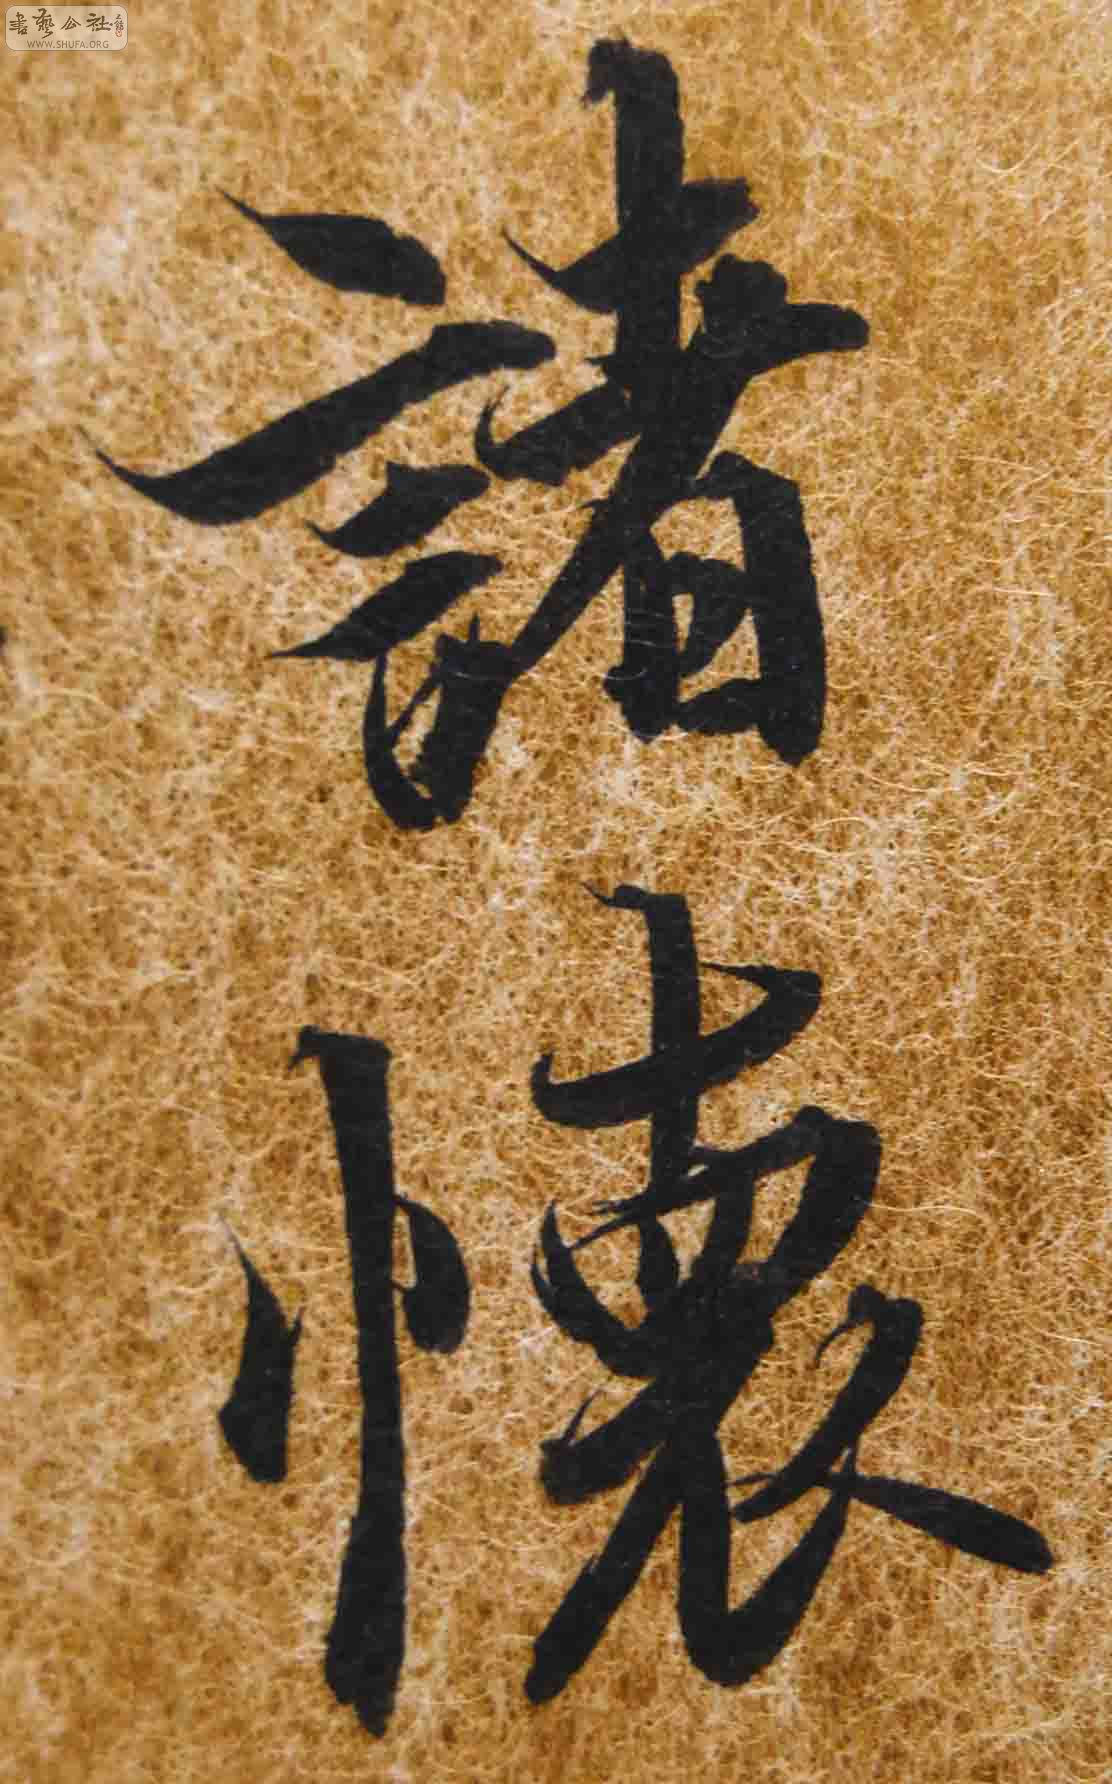 書藝公社
WWW.SHUFA.ORG
諸懷